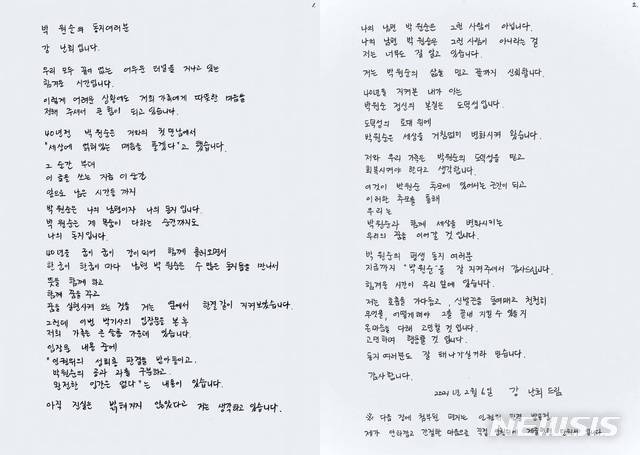 1.
박 원순의 동지여러분
강 난희입니다.
우리 모두 끝이 없는 어두운 터널을 지나고 있는
힘겨운 시간입니다.
이렇게 어려운 상황에도 저와 가족에게 따뜻한 마음을
전해 주셔서 큰 힘이 되고 있습니다.
40년전 박 원순은 저와의 첫 만남에서
"세상에 얽혀있는 매듭을 풀겠다"고 했습니다.
그 순간 부터
이 글을 쓰는 지금 이 순간
앞으로 남은 시간들 까지
박 원순은 나의 남편이자 나의 동지 입니다.
박 원순은 제 목숨이 다하는 순간까지도
나의 동지입니다.
40년을 굽이 굽이 강이되어 함께 흘러오면서
한 굽이 한굽이 마다 남편 박 원순은 수 많은 동지들을 만나서
뜻을 함께 하고
함께 꿈을 꾸고
꿈을 실현시켜 오는 것을 저는 옆에서 한결같이 지켜보았습니다.
그런데 이번 박기사의 입장문을 본 후
저희 가족은 큰 슬픔 가운데 있습니다.
입장문 내용 중에
"인권위의 성희롱 판결을 받아들이고.
박원순의 공과 과를 구분하고.
완전한 인간은 없다"는 내용이 있습니다.
아직 진실은 밝혀지지 않았다고 저는 생각하고 있습니다.
2.
나의 남편 박 원순은 그런 사람이 아닙니다.
나의 남편 박 원순은 그런 사람이 아니라는 걸
저는 너무도 잘 알고 있습니다.
저는 박원순의 삶을 믿고 끝까지 신뢰합니다.
40년을 지켜본 내가 아는
박원순 정신의 본질은 도덕성입니다.
도덕성의 토대 위에
박원순은 세상을 거침없이 변화시켜 왔습니다.
저와 우리 가족은 박원순의 도덕성을 믿고
회복시켜야 한다고 생각합니다.
이것이 박원순 추모에 있어서는 근간이 되고
이러한 추모를 통해
우리는
박원순과 함께 세상을 변화시키는
우리의 꿈을 이어갈 것 입니다.
박 원순의 평생 동지 여러분
지금까지 "박원순"을 잘 지켜주셔서 감사드립니다.
힘겨운 시간이 우리 앞에 있습니다.
저는 호흡을 가다듬고, 신발끈을 동여매고 천천히
무엇을, 어떻게 해야 그를 끝내 지킬 수 있을지
온마음을 다해 고민할 것 입니다.
고민하며 행동할 것 입니다.
동지 여러분도 잘 해나가실거라 믿습니다.
감사합니다.
2021년 2월 6일 강 난희 드림
※ 다음 장에 첨부된 편지는 인권위
제가 간절한 마음으로 직접
NEWSIS